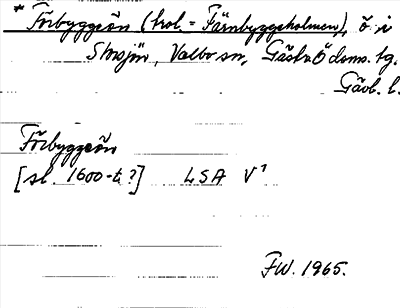 * Förbyggeön (trol. = Färnbyggeholmen), ö i
Storsjön, Valbo sn, Gästr. Ö doms. tg.
Gävl. l.
Förbyggeön
[sl. 1600-t. ?] LSA V¹
FW. 1965.